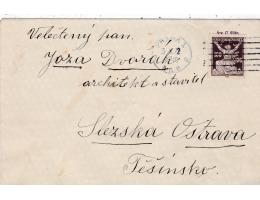 Veletěný pan.
Joza Dvořák
architekt a stavitel
Slezská Ostrava
Těšínsko.